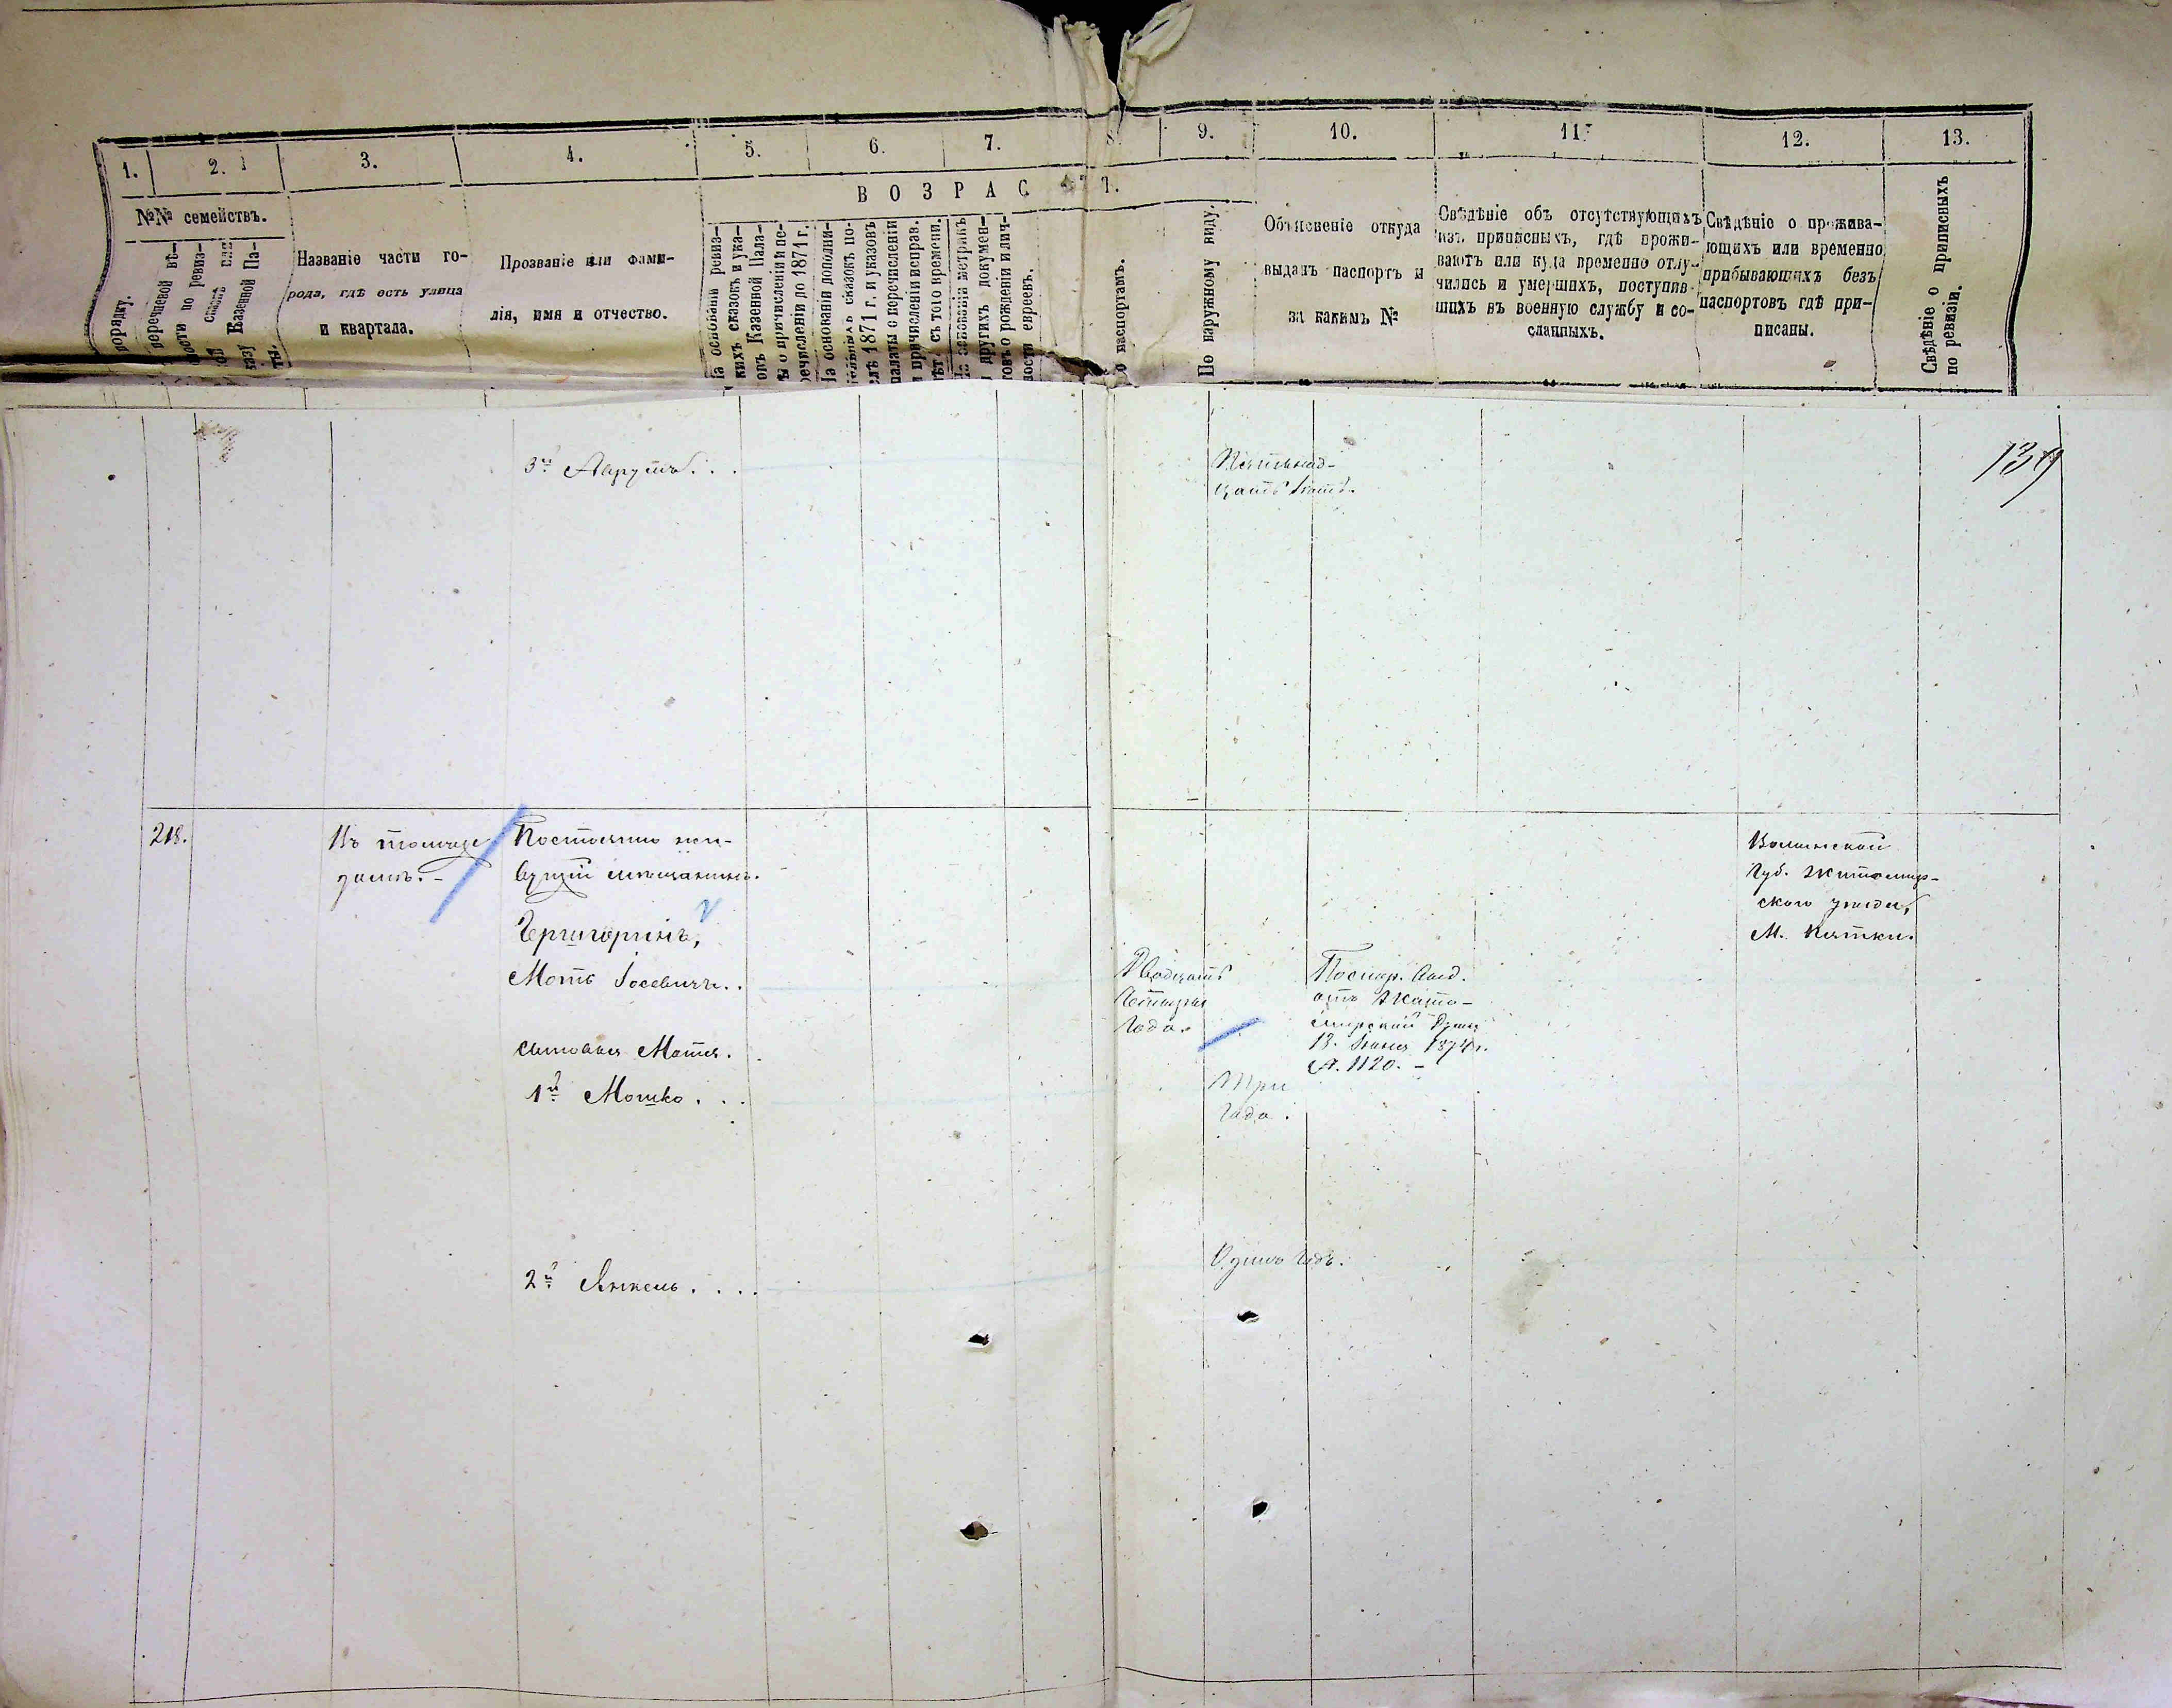 1.
2.
3.
4.
5.
6.
7.
8.
9.
10.
11.
12.
13.
№№ семействъ.
порядку.
перечневой вѣ-
мости по ревиз-
Казенной Па-
Названіе части го-
рода, гдѣ есть улица
и квартала.
Прозваніе или фами-
лія, имя и отчество.
ВОЗРАСТЪ.
На основаніи ревиз-
скихъ сказокъ и ука-
зовъ Казенной Пала-
ты о причисленіи и пе-
речисленіи до 1871 г.
На основаніи дополни-
тельныхъ сказокъ по-
слѣ 1871 г. и указовъ
палаты о перечисленіи
и причисленіи исправ.
лѣт. съ того времени.
На основаніи метрикъ
и другихъ докумен-
товъ о рожденіи и лич-
ности евреевъ.
По паспортамъ.
По наружному виду.
Объясненіе откуда
выданъ паспортъ и
за какимъ №
Свѣдѣніе объ отсутствующихъ
изъ приписныхъ, гдѣ прожи-
ваютъ или куда временно отлу-
чились и умершихъ, поступив-
шихъ въ военную службу и со-
сланныхъ.
Свѣдѣніе о прожива-
ющихъ или временно
прибывающихъ безъ
паспортовъ гдѣ при-
писаны.
Свѣдѣніе о приписныхъ
по ревизіи.
139
3й
Пятьнад-
цать лѣтъ.
218.
Въ томъ же
домѣ.-
Постоянно жи-
вущій мѣщанинъ.
Мотъ Іосевичъ..
Двадцать
Четыре
Года.
отъ Жито-
мирской Думы
13. Іюня 1874 г.
№. 1120. -
Волынской
Губ. Житомир-
скаго уѣзда,
М.
Сыновья Мотя.
1й Мошко...
Три
Года.
2й Янкель....
Одинъ Годъ.